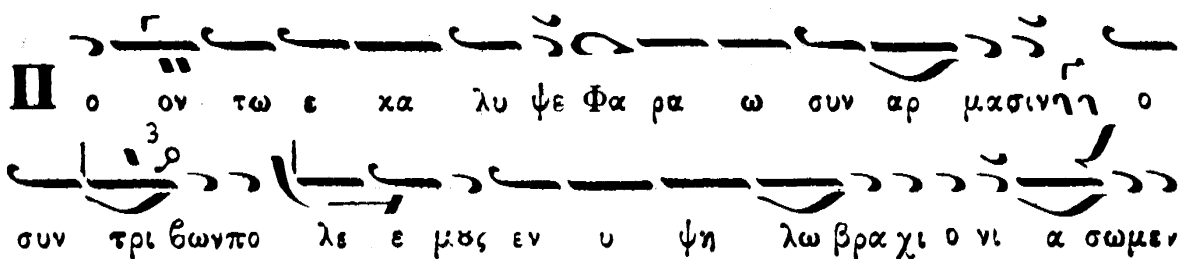 Π ο ον τω ε κα λυ ψε Φα ρα ω συν αρ μασινηη ο
συν τρι βωνπο λε ε μȣς εν υ ψη λω βρα χι ο νι α σωμεν